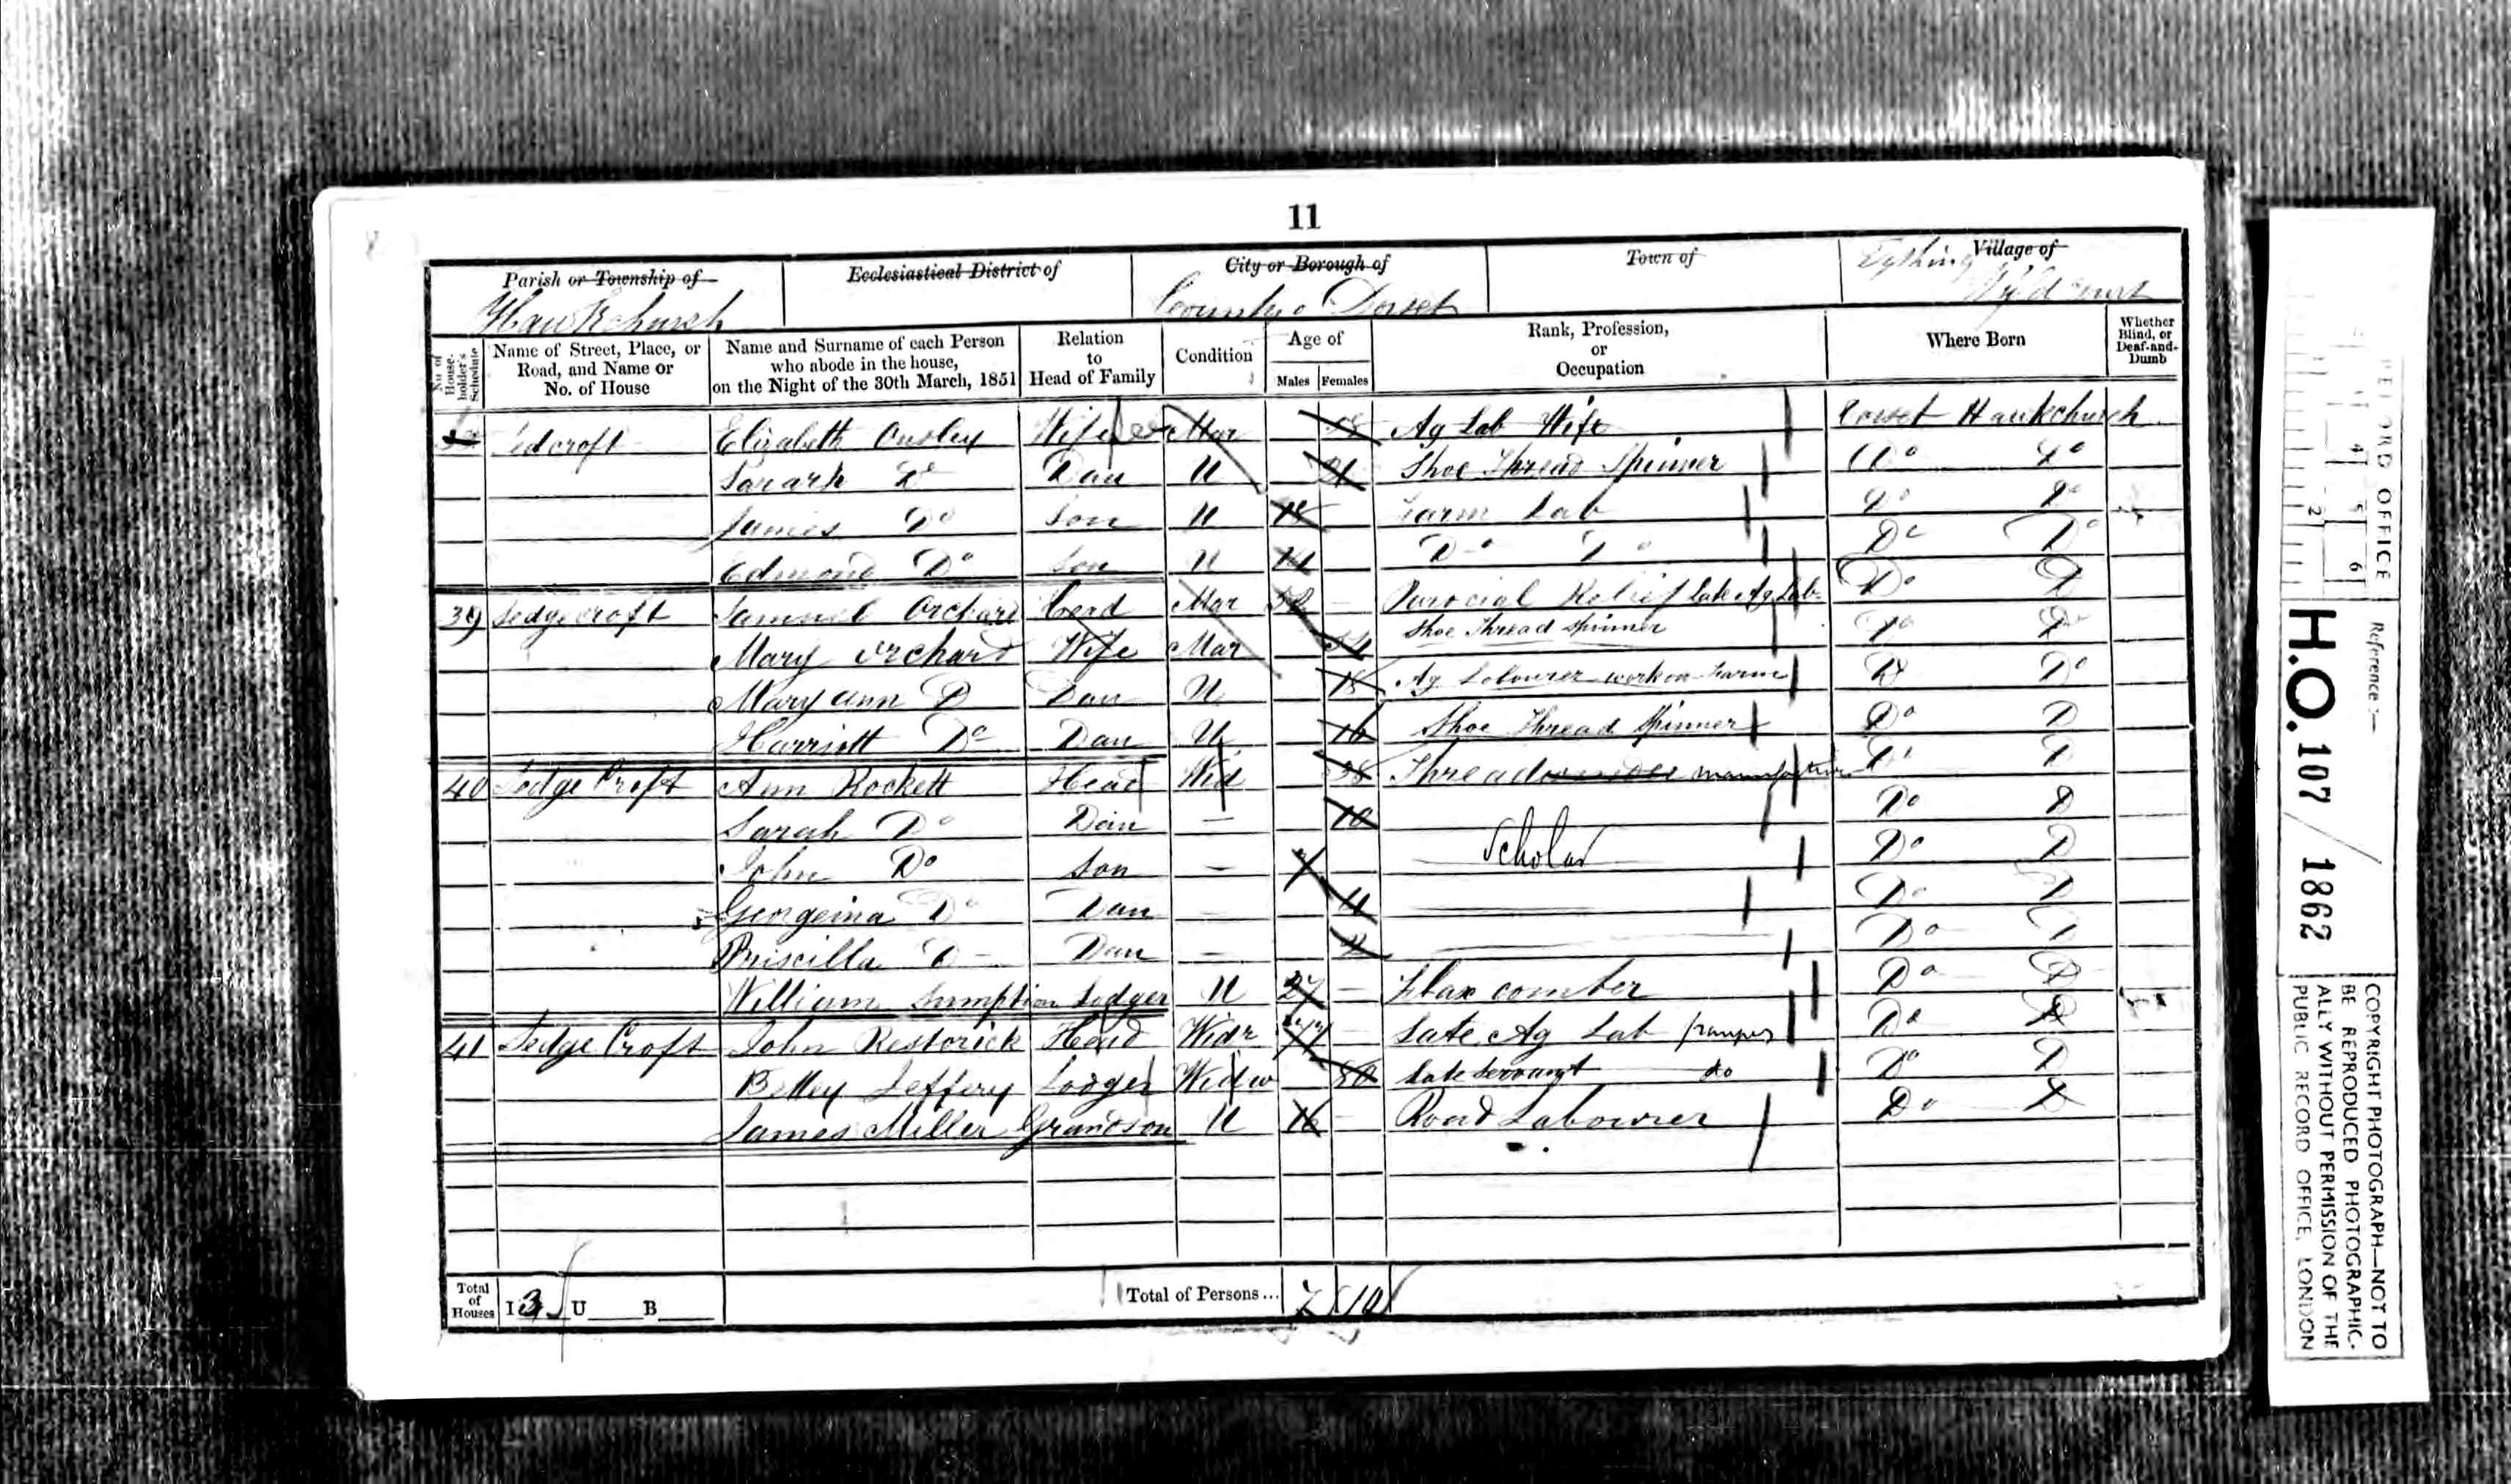 11
Parish or Township of
Hawkchurch
Ecclesiastical District of
City or Borough of
County Dorset
Town of
Village of
Tything Wyld Court
No. of House-holder's Schedule
Name of Street, Place, or Road, and Name or No. of House
Name and Surname of each Person who abode in the house, on the Night of the 30th March, 1851
Relation to Head of Family
Condition
Age of
Males Females
Rank, Profession, or Occupation
Where Born
Whether Blind, or Deaf-and-Dumb
Elizabeth Wife Mar Ag Lab Wife Dorset Hawkchurch
Sararh Do Dau U 21 Shoe Thread Spinner Do Do
James Do Son U Farm Lab Do Do
Edmond Do Son U Do Do Do Do
39 Sedgecroft Samuel Orchard Head Mar Parocial Relief Late Ag Lab Do D
Mary Orchard Wife Mar 54 Shoe Thread Spinner Do Do
Mary Ann D Dau U 18 Ag Labourer work on Farm D Do
Harriett Do Dau U 16 Shoe Thread Spinner Do D
40 Sedge Croft Ann Rockett Head Wid 38 Thread manufacture Do D
Sarah Do Dau — 10 Do D
John Do Son — 7 Scholar Do D
Georgeina Do Dau — 4 Do D
Priscilla D Dau — 2 Do D
William Sumption Lodger U 27 Flax comber Do D
41 Sedge Croft John Restorick Head Widr Late Ag Lab pauper Do D
Bettey Jeffery Lodger Widw 80 Late Servant do Do D
James Miller Grandson U 16 Road Labourer Do D
Total of Houses I 3 U B
Total of Persons... 7 10
RECORD OFFICE
Reference:-
H.O. 107 / 1862
COPYRIGHT PHOTOGRAPH—NOT TO
BE REPRODUCED PHOTOGRAPHIC-
ALLY WITHOUT PERMISSION OF THE
PUBLIC RECORD OFFICE, LONDON